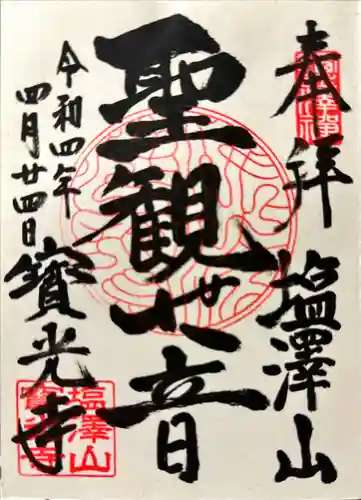 奉拝 塩澤山
聖観世音
令和四年
四月廿四日
寶光寺
塩澤山
寶光寺